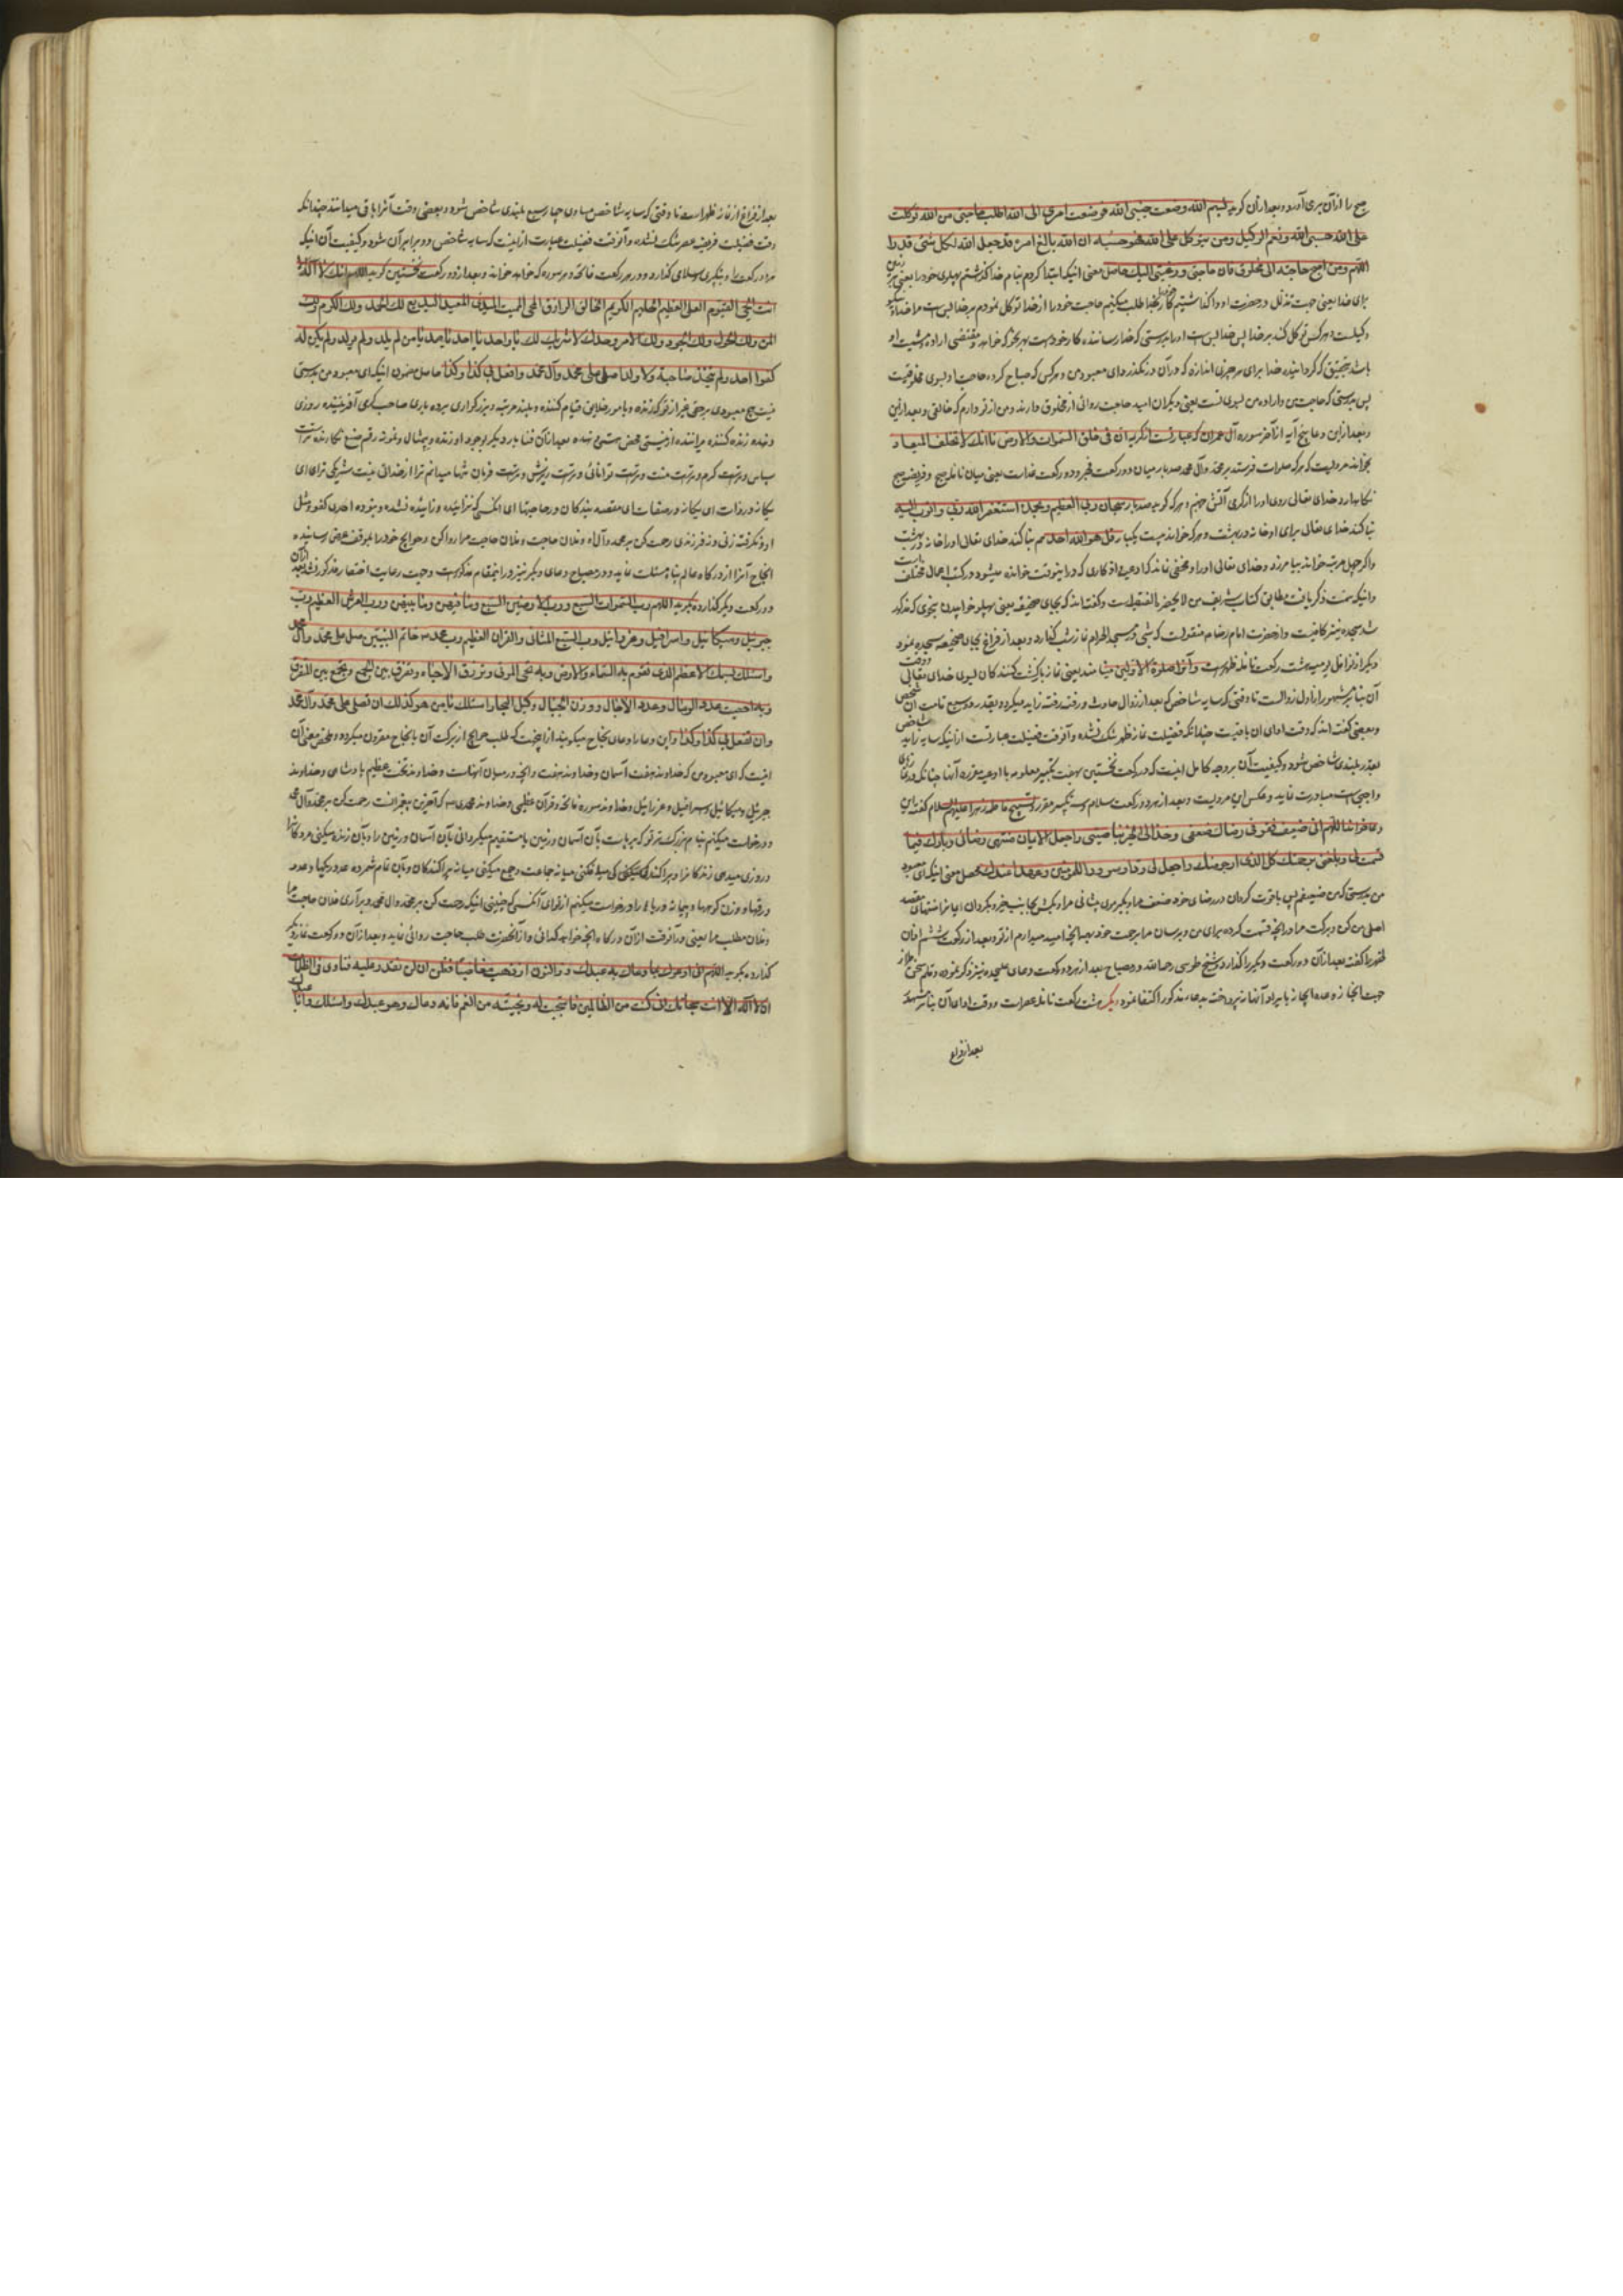 صبح را از آن بری آورد و بعد از آن گوید بسم الله وضعت جنبی لله فوضت امری الی الله اطلب حاجتی من الله توکلت
علی الله حسبی الله ونعم الوکیل ومن یتوکل علی الله فهو حسبه ان الله بالغ امره قد جعل الله لکل شیٔ قدرا
اللهم ومن اصبح حاجته الی مخلوق فان حاجتی ورغبتی الیک حاصل معنی اینکه ابتدا کردم بنام خدا گذاشتم پهلوی خود را
برای خدا یعنی جهت تذلل در حضرت او واگذاشتیم کار خود را بخدا طلب میکنیم حاجت خود را از خدا توکل نمودم بر خدا بس است مرا خدا
وکیلست و هر کس توکل کند بر خدا پس خدا بس است او را بدرستی که خدا رساننده کار خود است بهر نحو که خواهد و مقتضی اراده و مشیت او
باشد بتحقیق که گردانیده خدا برای هر چیزی اندازه که در آن در نگذرد ای معبود من و هر کس که صباح کرده حاجت او بسوی مخلوقیست
پس بدرستی که حاجت من و اراده من بسوی تست یعنی دیگران امید حاجت روائی از مخلوق دارند و من از تو دارم که خالقی و بعد ازین
و بعد ازین دعا پنج آیه از آخر سوره آل عمران که عبارتست از کریمه ان فی خلق السموات والارض تا انک لا تخلف المیعاد
بخواند مرویست که هر که صلوات فرستد بر محمد و آل محمد صد بار میان دو رکعت فجر و دو رکعت غدات یعنی میان نافله صبح و فریضه صبح
نگاه دارد خدای تعالی روی او را از گرمی آتش جهنم و هر که گوید صد بار سبحان ربی العظیم وبحمده استغفر الله ربی واتوب الیه
بنا کند خدای تعالی برای او خانه در بهشت و هر که خواند بیست یکبار قل هو الله احد هم بنا کند خدای تعالی او را خانه در بهشت
و اگر چهل مرتبه خواند بیامرزد خدای تعالی او را و مخفی نماند که ادعیه و اذکاری که درینوقت خوانده میشود در کتب اعمال مختلف
وانیکه سمت ذکر یافت مطابق کتاب شریف من لا یحضره الفقیه است و گفته اند که بجای ضجیعه یعنی پهلو خوابیدن بنحوی که مذکور
شد سجده نیز کافیست و از حضرت امام رضا ع منقولست که شبی در مسجد الحرام نماز شب گذارد و بعد از فراغ بجای ضجیعه سجده نمود
دیگر از نوافل یومیه هشت رکعت نافله ظهر است و آنرا صلوة الاوابین مینامند یعنی نماز بازگشت کنندگان بسوی خدای تعالی
آن بنا بر مشهور از اول زوالست تا وقتی که سایه شاخص که بعد از زوال حادث و رفته رفته زاید میگردد بقدر دو سبع قامت آن
و بعضی گفته اند که وقت ادای آن باقیست چندانکه فضیلت نماز ظهر شک نشده و آخر وقت فضیلت عبارتست از آنکه سایه زاید
بقدر بلندی شاخص شود و کیفیت آن بر وجه کامل اینست که در رکعت نخستین بهفت تکبیر معلوم با ادعیه مقرره آنها چنانکه در نماز
واجبی است مبادرت نماید و عکس این مرویست و بعد از هر دو رکعت سلام و سه تکبیر مقرر و تسبیح فاطمه زهرا علیها السلام گفته این
دعا خواند اللهم انی ضعیف فقو فی رضاک ضعفی وخذ الی الخیر بناصیتی واجعل الایمان منتهی رضائی وبارک لی فیما
قسمت لی وبلغنی برحمتک کل الذی ارجو منک واجعل لی ودا وسرورا للمؤمنین وعهدا عندک محصل معنی اینکه ای معبود
من بدرستی که من ضعیفم پس باقوت گردان در رضای خود ضعف مرا و بگیر موی پیشانی مرا و بکش بجانب خیر و بگردان ایمان را منتهای مقصد
اصلی من کن و برکت ده مرا در آنچه قسمت کرده برای من و برسان مرا برحمت خود بهمه آنچه امید میدارم از تو و بعد از رکعت ششم اذان
ظهر را گفت بعد از آن دو رکعت دیگر را گذارد و شیخ طوسی رحمه الله در مصباح بعد از هر دو رکعت دعای علیحده نیز ذکر نموده و قلم
جهت ایجاز بایراد آنها نپرداخت بدعای مذکور اکتفا نمود دیگر هشت رکعت نافله عصر است و وقت ادای آن بنا بر مشهور
بعد از فراغ
بعد از فراغ از نماز ظهر است تا وقتی که سایه شاخص مساوی چهار سبع بلندی شاخص شود و بعضی وقت آنرا باقی میدانند چندانکه
وقت فضیلت فریضه عصر شک نشده و آخر وقت فضیلت عبارت از اینست که سایه شاخص دو برابر آن شود و کیفیت آن اینکه
هر دو رکعت را بتکبیری و سلامی گذارد و در هر رکعت فاتحه و هر سوره که خواهد خواند و بعد از دو رکعت نخستین گوید اللهم انه لا اله الا
انت الحی القیوم العلی العظیم الحلیم الکریم الخالق الرازق المحیی الممیت المبدئ المعید البدیع لک الحمد ولک الکرم ولک
المن ولک الجود ولک الامر وحدک لا شریک لک یا واحد یا احد یا صمد یا من لم یلد ولم یولد ولم یکن له
کفوا احد ولم یتخذ صاحبة ولا ولدا صل علی محمد وآل محمد وافعل بی کذا وکذا حاصل مضمون اینکه ای معبود من بدرستی
نیست هیچ معبودی بر حق غیر از تو که زنده و بامور خلایق قیام کننده و بلند مرتبه و بزرگواری بردباری صاحب کرمی آفریننده روزی
دهنده زنده کننده میراننده
سپاس و تراست کرم و تراست منت و تراست توانائی و تراست بخشش و تراست فرمان تنها میدانم ترا از خدائی نیست شریکی ترا ای
یگانه در ذات ای یگانه در صفات ای مقصد بندگان در حاجتها ای آنکسی که نزائیده و زائیده نشده و نبوده احدی کفو و مثل
او و نگرفته زنی و نه فرزندی رحمت کن بر محمد و آل او و فلان حاجت و فلان حاجت مرا روا کن و حوایج خود را بموقف عرض رسانیده
انجاح آنرا از درگاه عالم پناه مسئلت نماید و در مصباح دعای دیگر نیز در اینمقام مذکور است و جهت رعایت اختصار مذکور نشد بعد از آن
دو رکعت دیگر گذارده بگوید اللهم رب السموات السبع ورب الارضین السبع وما فیهن وما بینهن ورب العرش العظیم ورب
جبرئیل ومیکائیل واسرافیل وعزرائیل ورب السبع المثانی والقران العظیم ورب محمد ص خاتم النبیین صل علی محمد وآل محمد
واسئلک باسمک الاعظم الذی تقوم به السماء والارض وبه تحیی الموتی وترزق الاحیاء وتفرق بین الجمع وتجمع بین المتفرق
وبه احصیت عدد الرمال وعدد الاجال ووزن الجبال وکیل البحار اسئلک یا من هو کذلک ان تصلی علی محمد وآل محمد
وان تفعل بی کذا وکذا و این دعا را دعای نجاح میگویند از اینجهت که طلب حوایج از برکت آن بانجاح مقرون میگردد و ملخص معنی آن
اینست که ای معبود من که خداوند هفت آسمان و خداوند هفت و آنچه در میان آنهاست و خداوند تخت عظیم پادشاهی و خداوند
جبرئیل و میکائیل و اسرافیل و عزرائیل و خداوند سوره فاتحه و قرآن عظیمی و خداوند محمدی ص که آخرین پیغمبرانست رحمت کن بر محمد و آل محمد
و درخواست میکنیم بنام بزرگ تو که بر پاست بآن آسمان و زمین یا مستقیم میگردانی بآن آسمان و زمین را و بآن زنده میکنی مردگانرا
و روزی میدهی زندگانرا و پراکنده میکنی میانه جماعت و جمع میکنی میانه پراکندگان و بآن نام شمرده عدد ریگها و عدد
و وزن کوهها و پیمانه دریاها را درخواست میکنیم از تو ای آنکسی که چنینی اینکه رحمت کن بر محمد و آل محمد و برآری فلان حاجت مرا
و فلان مطلب مرا یعنی در آنوقت از آن درگاه آنچه خواهد گدائی و از آنحضرت طلب حاجت روائی نماید و بعد از آن دو رکعت نماز دیگر
گذارده بگوید اللهم انی ادعوک بما دعاک به عبدک ذو النون اذ ذهب مغاضبا فظن ان لن نقدر علیه فنادی فی الظلمات
ان لا اله الا انت سبحانک انی کنت من الظالمین فاستجبت له ونجیته من الغم فانه دعاک وهو عبدک واسئلک وانا عبدک